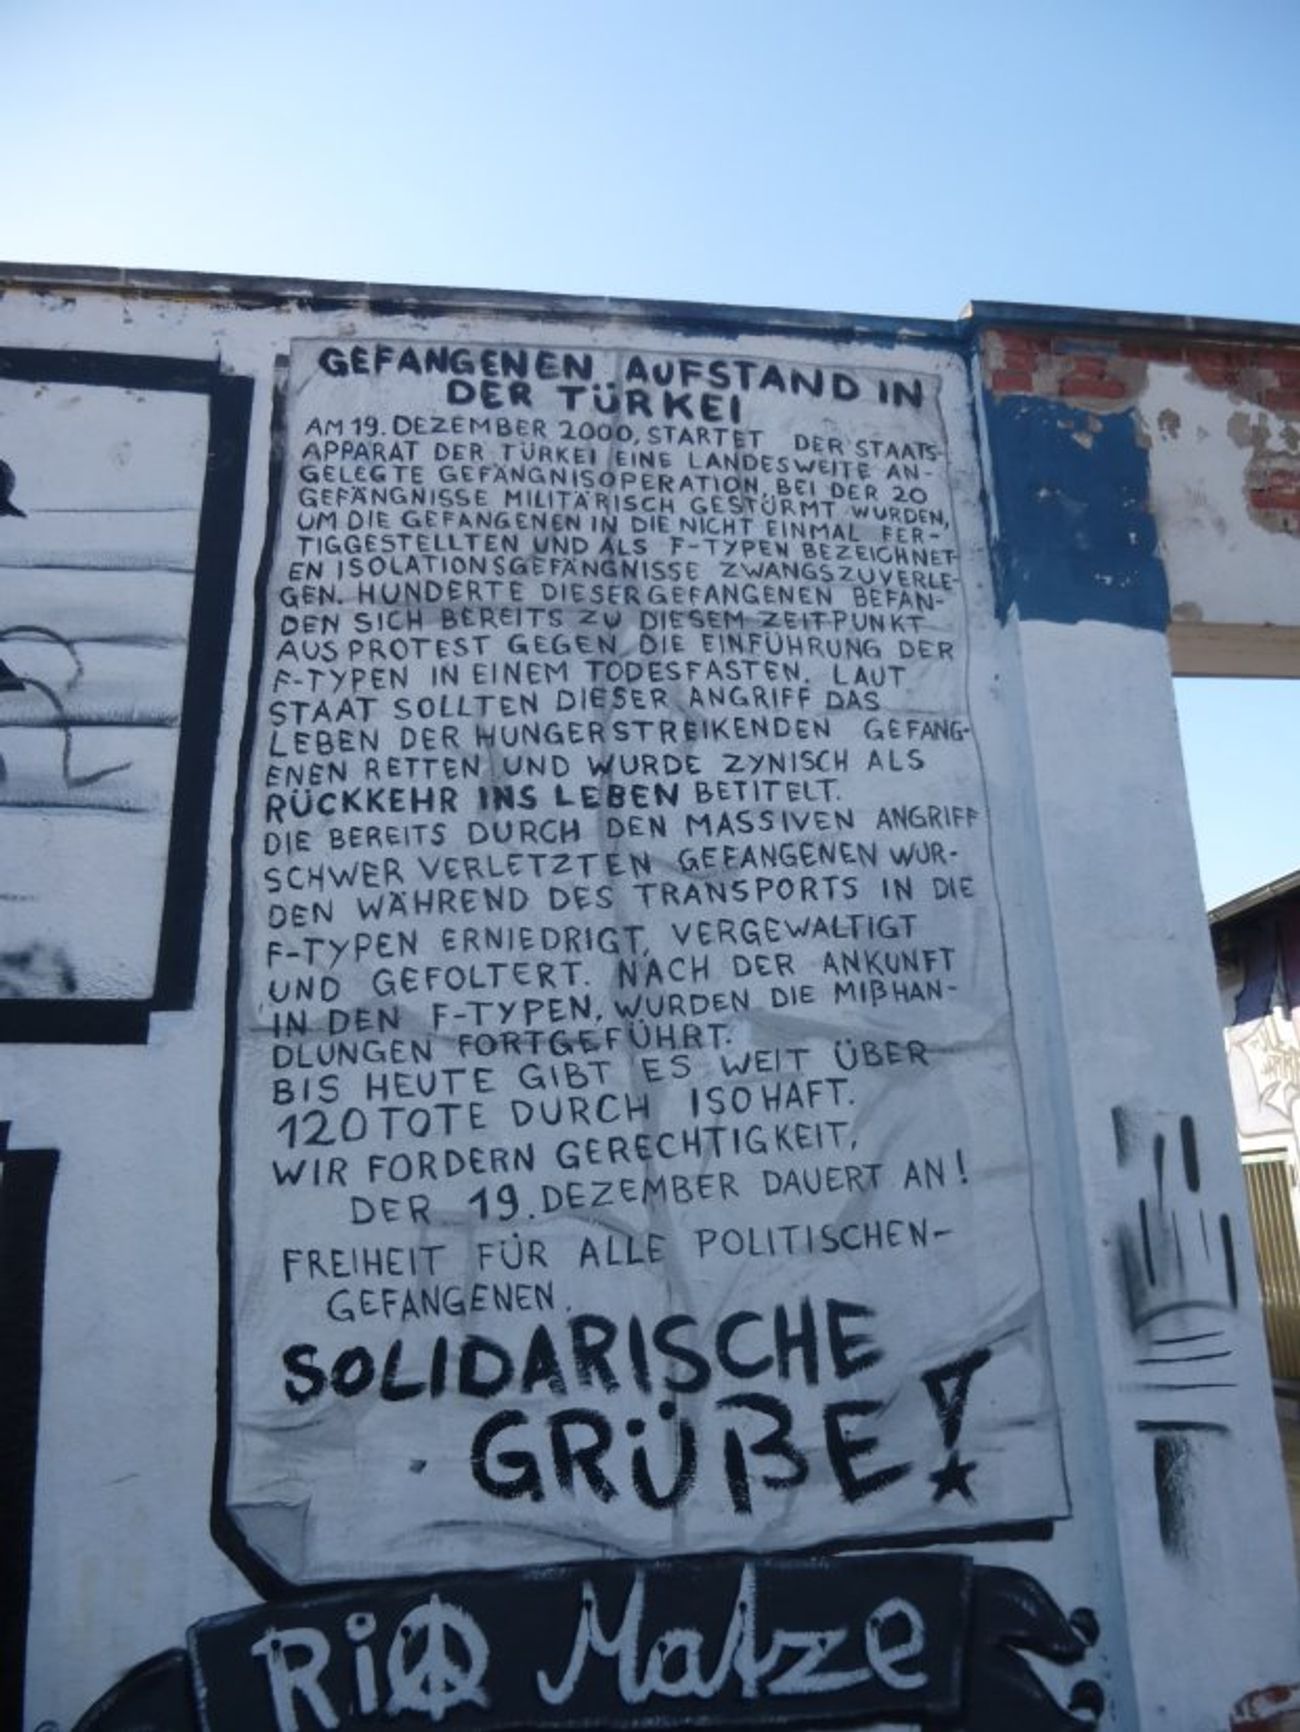 GEFANGENEN AUFSTAND IN
DER TÜRKEI
AM 19. DEZEMBER 2000, STARTET DER STAATS-
APPARAT DER TÜRKEI EINE LANDESWEITE AN-
GELEGTE GEFÄNGNISOPERATION, BEI DER 20
GEFÄNGNISSE MILITÄRISCH GESTÜRMT WURDEN,
UM DIE GEFANGENEN IN DIE NICHT EINMAL FER-
TIGGESTELLTEN UND ALS F-TYPEN BEZEICHNET-
EN ISOLATIONSGEFÄNGNISSE ZWANGSZUVERLE-
GEN. HUNDERTE DIESER GEFANGENEN BEFAN-
DEN SICH BEREITS ZU DIESEM ZEITPUNKT
AUS PROTEST GEGEN DIE EINFÜHRUNG DER
F-TYPEN IN EINEM TODESFASTEN. LAUT
STAAT SOLLTEN DIESER ANGRIFF DAS
LEBEN DER HUNGERSTREIKENDEN GEFANG-
ENEN RETTEN UND WURDE ZYNISCH ALS
RÜCKKEHR INS LEBEN BETITELT.
DIE BEREITS DURCH DEN MASSIVEN ANGRIFF
SCHWER VERLETZTEN GEFANGENEN WUR-
DEN WÄHREND DES TRANSPORTS IN DIE
F-TYPEN ERNIEDRIGT, VERGEWALTIGT
UND GEFOLTERT. NACH DER ANKUNFT
IN DEN F-TYPEN, WURDEN DIE MIßHAN-
DLUNGEN FORTGEFÜHRT.
BIS HEUTE GIBT ES WEIT ÜBER
120 TOTE DURCH ISOHAFT.
WIR FORDERN GERECHTIGKEIT,
DER 19. DEZEMBER DAUERT AN!
FREIHEIT FÜR ALLE POLITISCHEN-
GEFANGENEN.
SOLIDARISCHE
GRÜßE!
RiO Matze